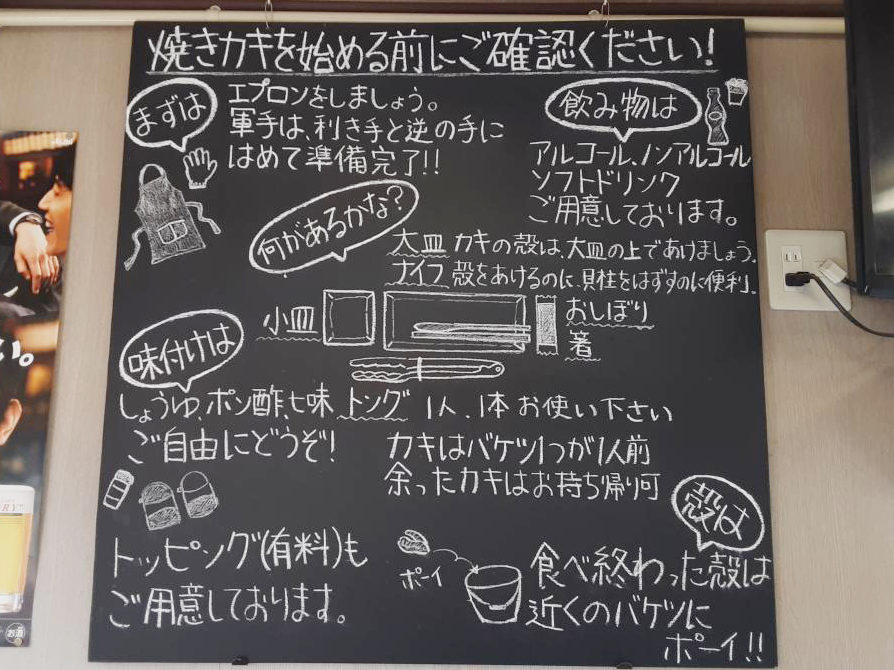 焼きカキを始める前にご確認ください!
まずは
エプロンをしましょう。
軍手は、利き手と逆の手に
はめて準備完了!!
飲み物は
アルコール、ノンアルコール
ソフトドリンク
ご用意しております。
何があるかな?
大皿 カキの殻は、大皿の上であけましょう。
ナイフ 殻をあけるのに、貝柱をはずすのに便利。
小皿
おしぼり
箸
味付けは
しょうゆ、ポン酢、七味
ご自由にどうぞ!
トング 1人、1本 お使い下さい
カキはバケツ1つが1人前
余ったカキはお持ち帰り可
トッピング(有料)も
ご用意しております。
殻は
ポーイ
食べ終わった殻は
近くのバケツに
ポーイ!!
い。
お酒